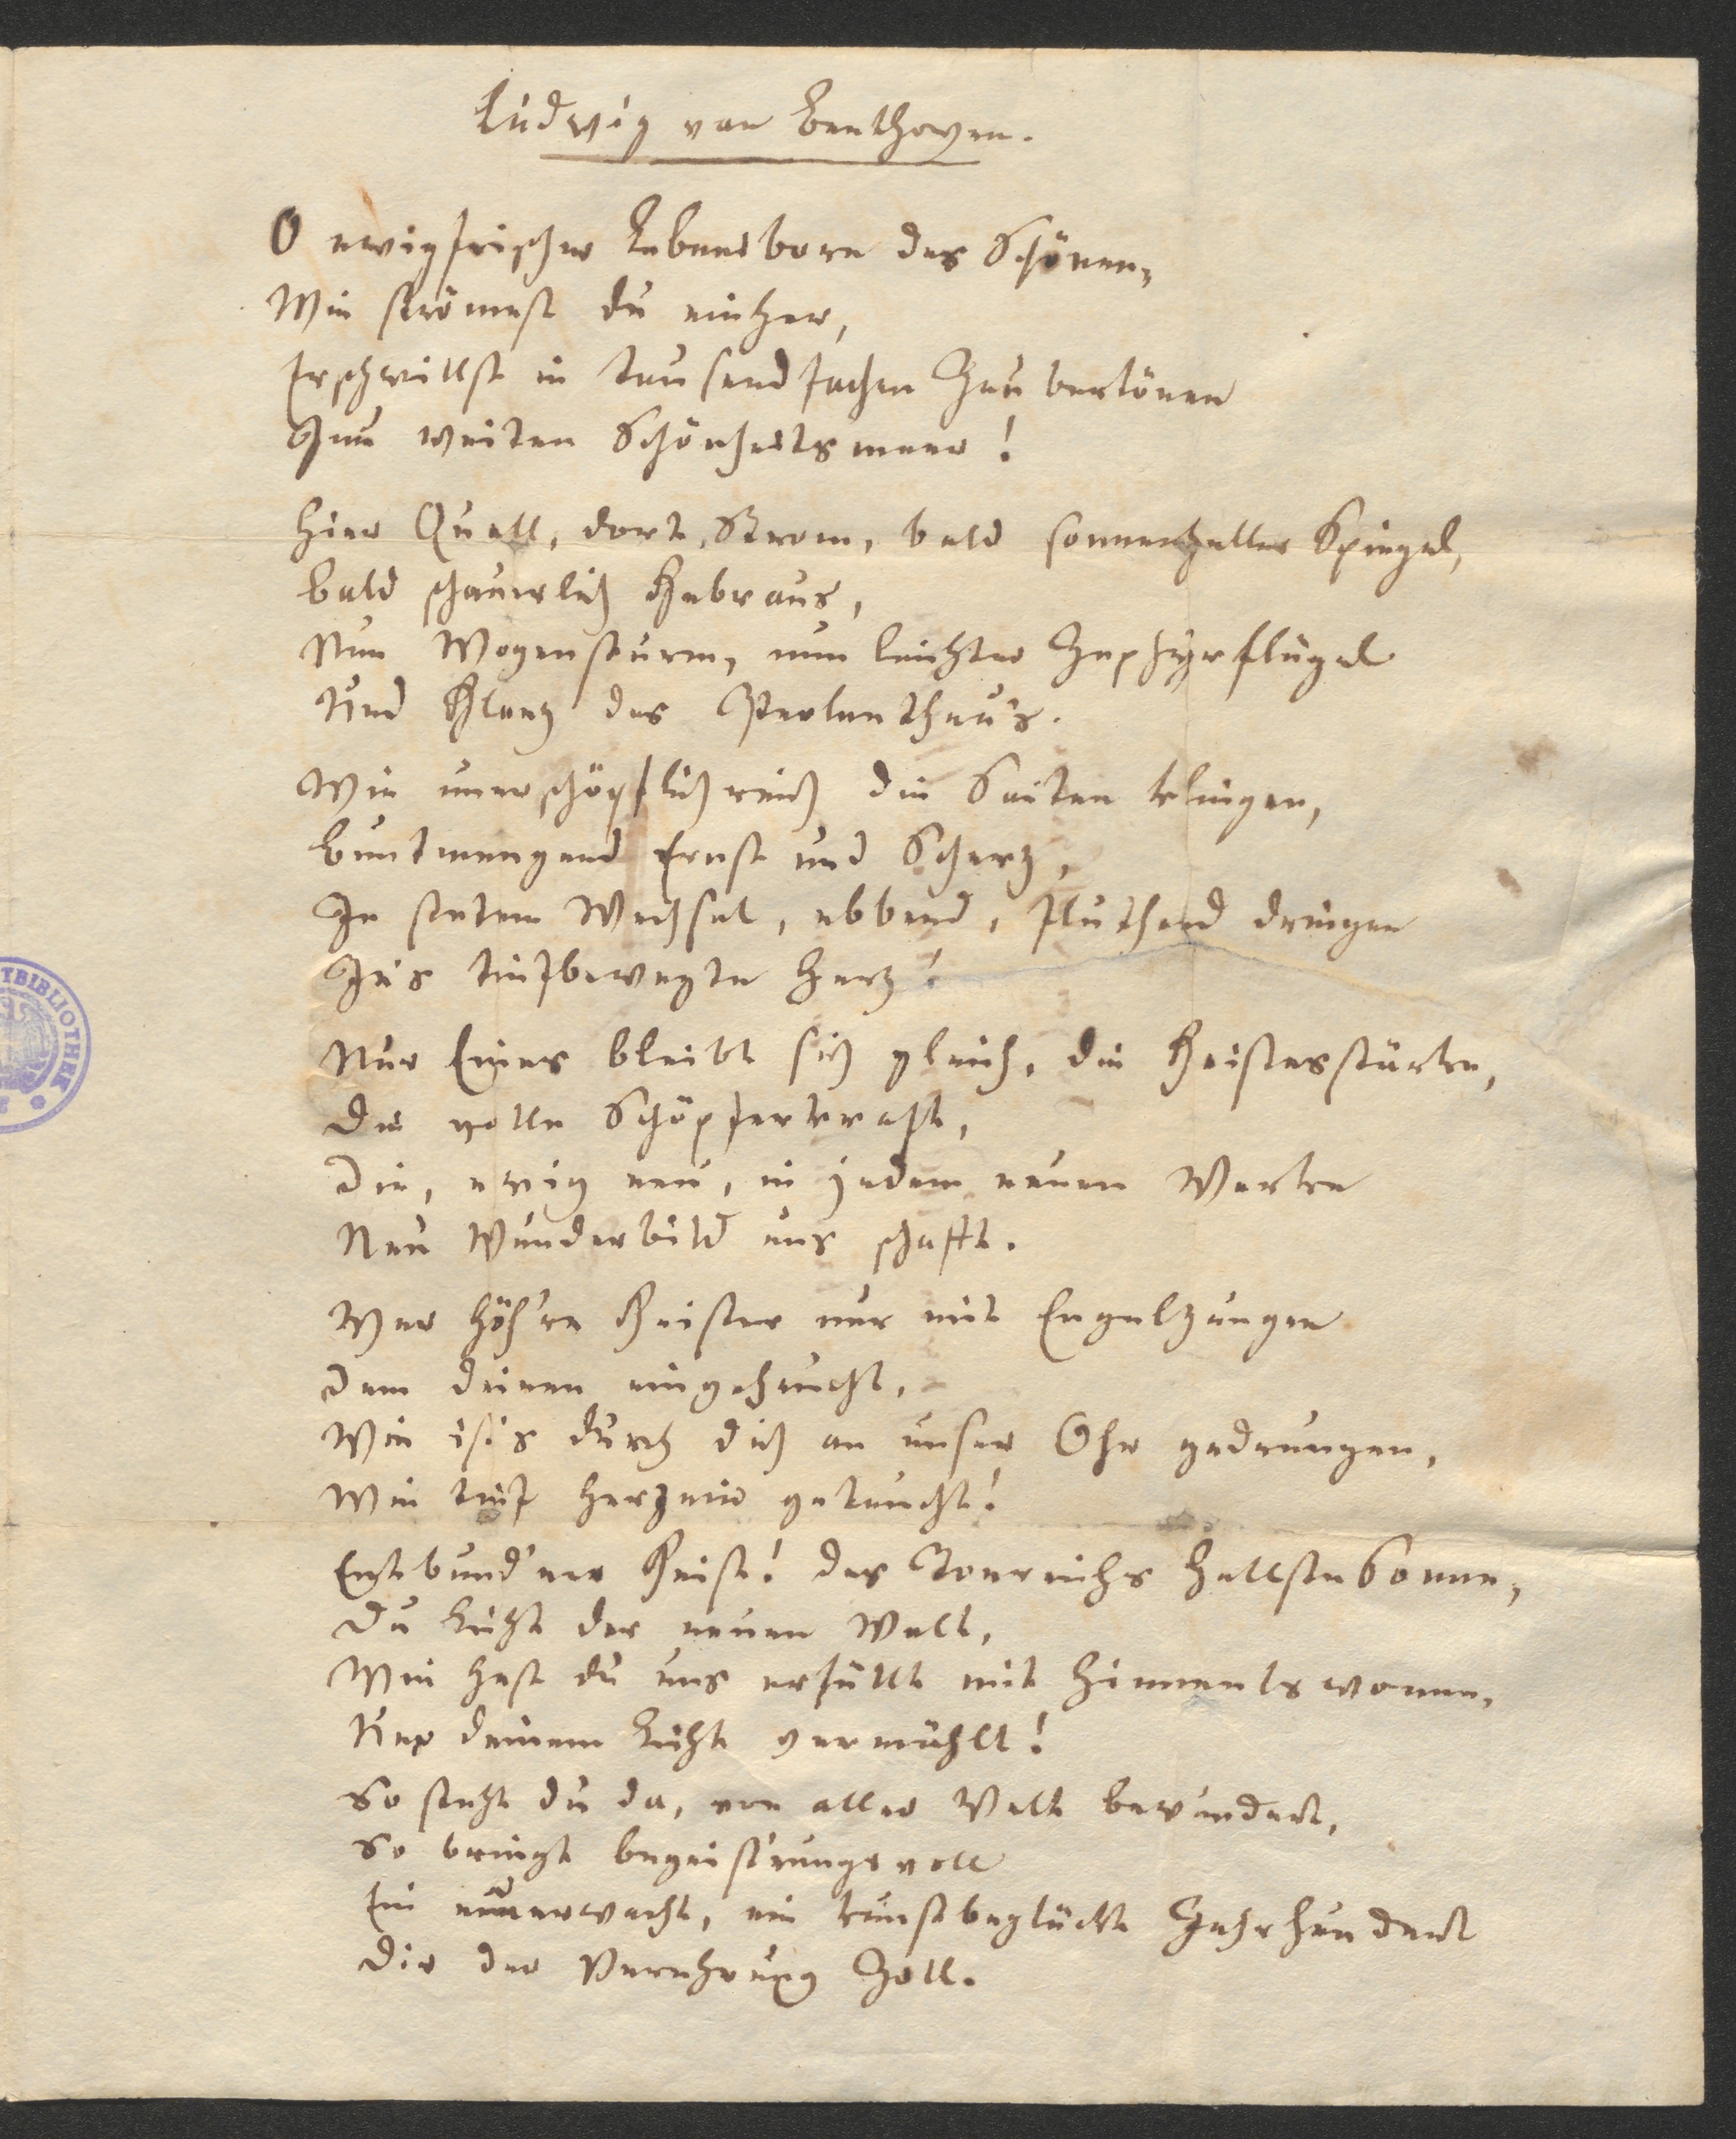 Ludwig van Beethoven.
O ewigfrischer Lebensborn des Schönen,
Wie strömest du einher,
Erschwillst in tausendfachen Zaubertönen
Zum weiten Schönheitsmeer!
Hier Quell, dort Strom, bald sonnenheller Spiegel,
Bald schauerlich Gebraus,
Nun Wogensturm, nun leichter Zephyrflügel
Und Glanz des Perlenthau's.
Wie unerschöpflich reich die Saiten klingen,
Buntmengend Ernst und Scherz,
In stetem Wechsel, ebbend, fluthend dringen
In's tiefbewegte Herz!
Nur Eines bleibt sich gleich, die Geistesstärke,
Die volle Schöpferkraft,
Die, ewig neu, in jedem neuen Werke
Neu Wunderbild uns schafft.
Was höh're Geister nur mit Engelzungen
Dem deinen eingehaucht,
Wie ists durch dich an unser Ohr gedrungen,
Wie tief herzein getaucht!
Entbund'ner Geist! des Tonreichs hellste Sonne,
Du Licht der neuen Welt,
Wie hast du uns erfüllt mit Himmelswonne,
Uns deinem Licht vermählt!
So stehst du da, von aller Welt bewundert,
So bringt begeist'rungsvoll
Ein neuerwacht, ein kunstbeglückt Jahrhundert
Dir der Verehrung Zoll.
TBIBLIOTHEK